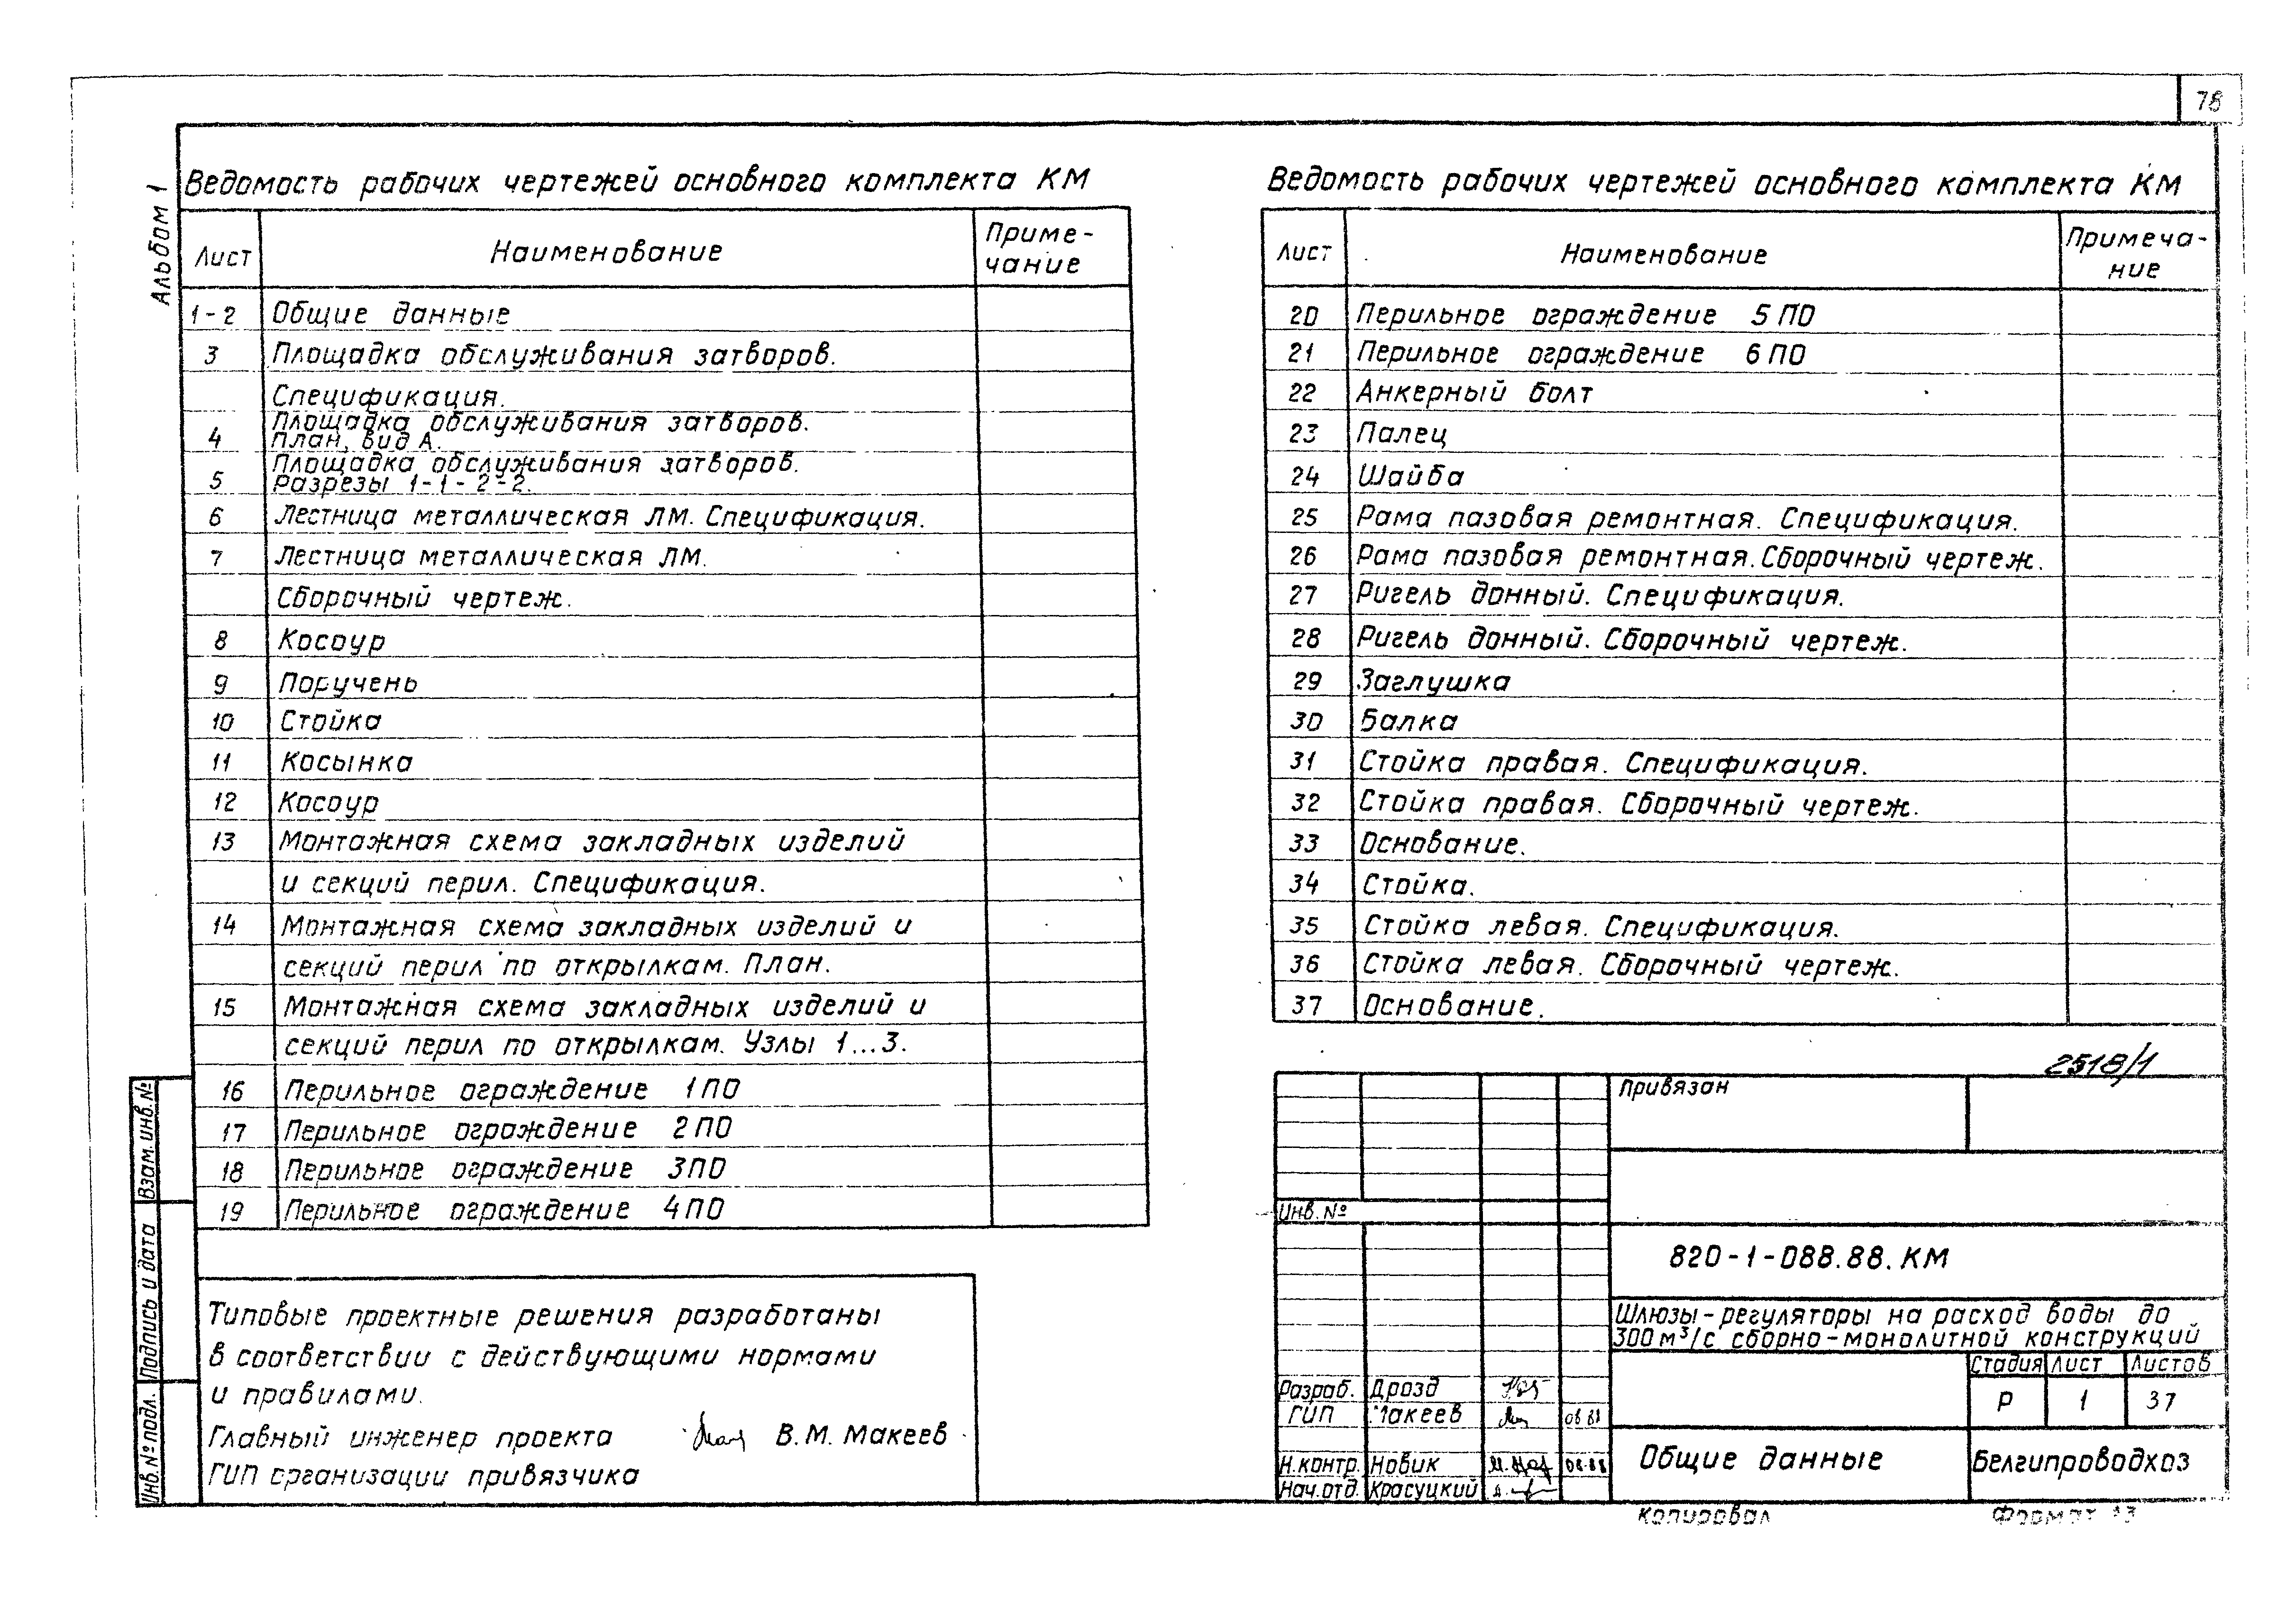 78
Альбом 1
Ведомость рабочих чертежей основного комплекта КМ
Лист Наименование Приме-
чание
1-2 Общие данные
3 Площадка обслуживания затворов.
Спецификация.
4 Площадка обслуживания затворов.
План, вид А.
5 Площадка обслуживания затворов.
Разрезы 1-1 - 2-2.
6 Лестница металлическая ЛМ. Спецификация.
7 Лестница металлическая ЛМ.
Сборочный чертеж.
8 Косоур
9 Поручень
10 Стойка
11 Косынка
12 Косоур
13 Монтажная схема закладных изделий
и секций перил. Спецификация.
14 Монтажная схема закладных изделий и
секций перил по открылкам. План.
15 Монтажная схема закладных изделий и
секций перил по открылкам. Узлы 1...3.
16 Перильное ограждение 1ПО
17 Перильное ограждение 2ПО
18 Перильное ограждение 3ПО
19 Перильное ограждение 4ПО
Ведомость рабочих чертежей основного комплекта КМ
Лист Наименование Примеча-
ние
20 Перильное ограждение 5ПО
21 Перильное ограждение 6ПО
22 Анкерный болт
23 Палец
24 Шайба
25 Рама пазовая ремонтная. Спецификация.
26 Рама пазовая ремонтная. Сборочный чертеж.
27 Ригель донный. Спецификация.
28 Ригель донный. Сборочный чертеж.
29 Заглушка
30 Балка
31 Стойка правая. Спецификация.
32 Стойка правая. Сборочный чертеж.
33 Основание.
34 Стойка.
35 Стойка левая. Спецификация.
36 Стойка левая. Сборочный чертеж.
37 Основание.
Типовые проектные решения разработаны
в соответствии с действующими нормами
и правилами.
Главный инженер проекта В.М. Макеев
ГИП организации привязчика
Взам. инв. №
Подпись и дата
Инв. № подл.
2518/1
Привязан
Инв. №
820-1-088.88.КМ
Шлюзы-регуляторы на расход воды до
300 м³/с сборно-монолитной конструкций
Стадия Лист Листов
Р 1 37
Разраб. Дрозд
ГИП Макеев
Н.контр. Новик 08.88
Нач.отд. Красуцкий
Общие данные
Белгипроводхоз
Копировал
Формат